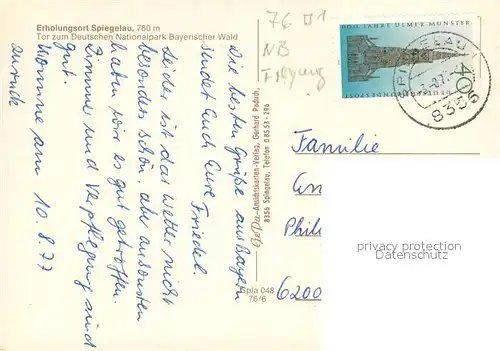 Erholungsort Spiegelau, 780 m
Tor zum Deutschen Nationalpark Bayerischer Wald
Die besten Grüße aus Bayern
sendet Euch Eure Friedel.
Leider ist das Wetter nicht
besonders schön, aber ansonsten
haben wir es gut getroffen.
Zimmer und Verpflegung sind
gut.
Komme am 10.8.77
zurück
-Ansichtskarten-Verlag, Gerhard
8356 Spiegelau, Telefon 0 85 53 - 296
Spla 048
76/6
76 1
NB
Freyung
600 JAHRE ULMER MÜNSTER
DEUTSCHE BUNDESPOST
40
SPIEGELAU
8356
Familie
Phili
6200
privacy protection
oldthing.com